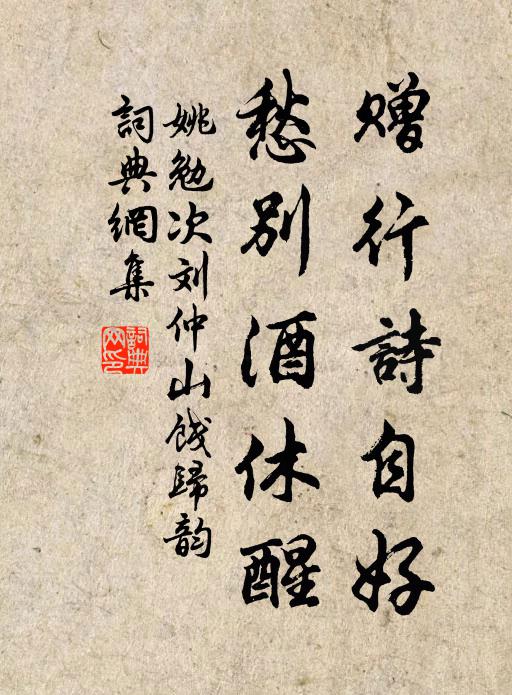 赠行詩自好
愁别酒休醒
姚勉次刘仲山饯歸韵
詞典網集
詞典网印